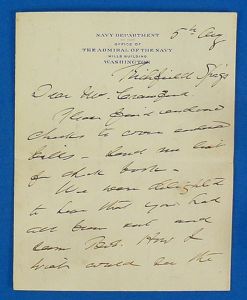 NAVY DEPARTMENT
OFFICE OF
THE ADMIRAL OF THE NAVY
MILLS BUILDING
WASHINGTON
5th Aug
Richfield Spgs
Dear Mr. Crawford.
Please find enclosed
checks to cover
bills – Send me list
of check book –
We were delighted
to hear that you had
all been out and
seen How I
wish could see the